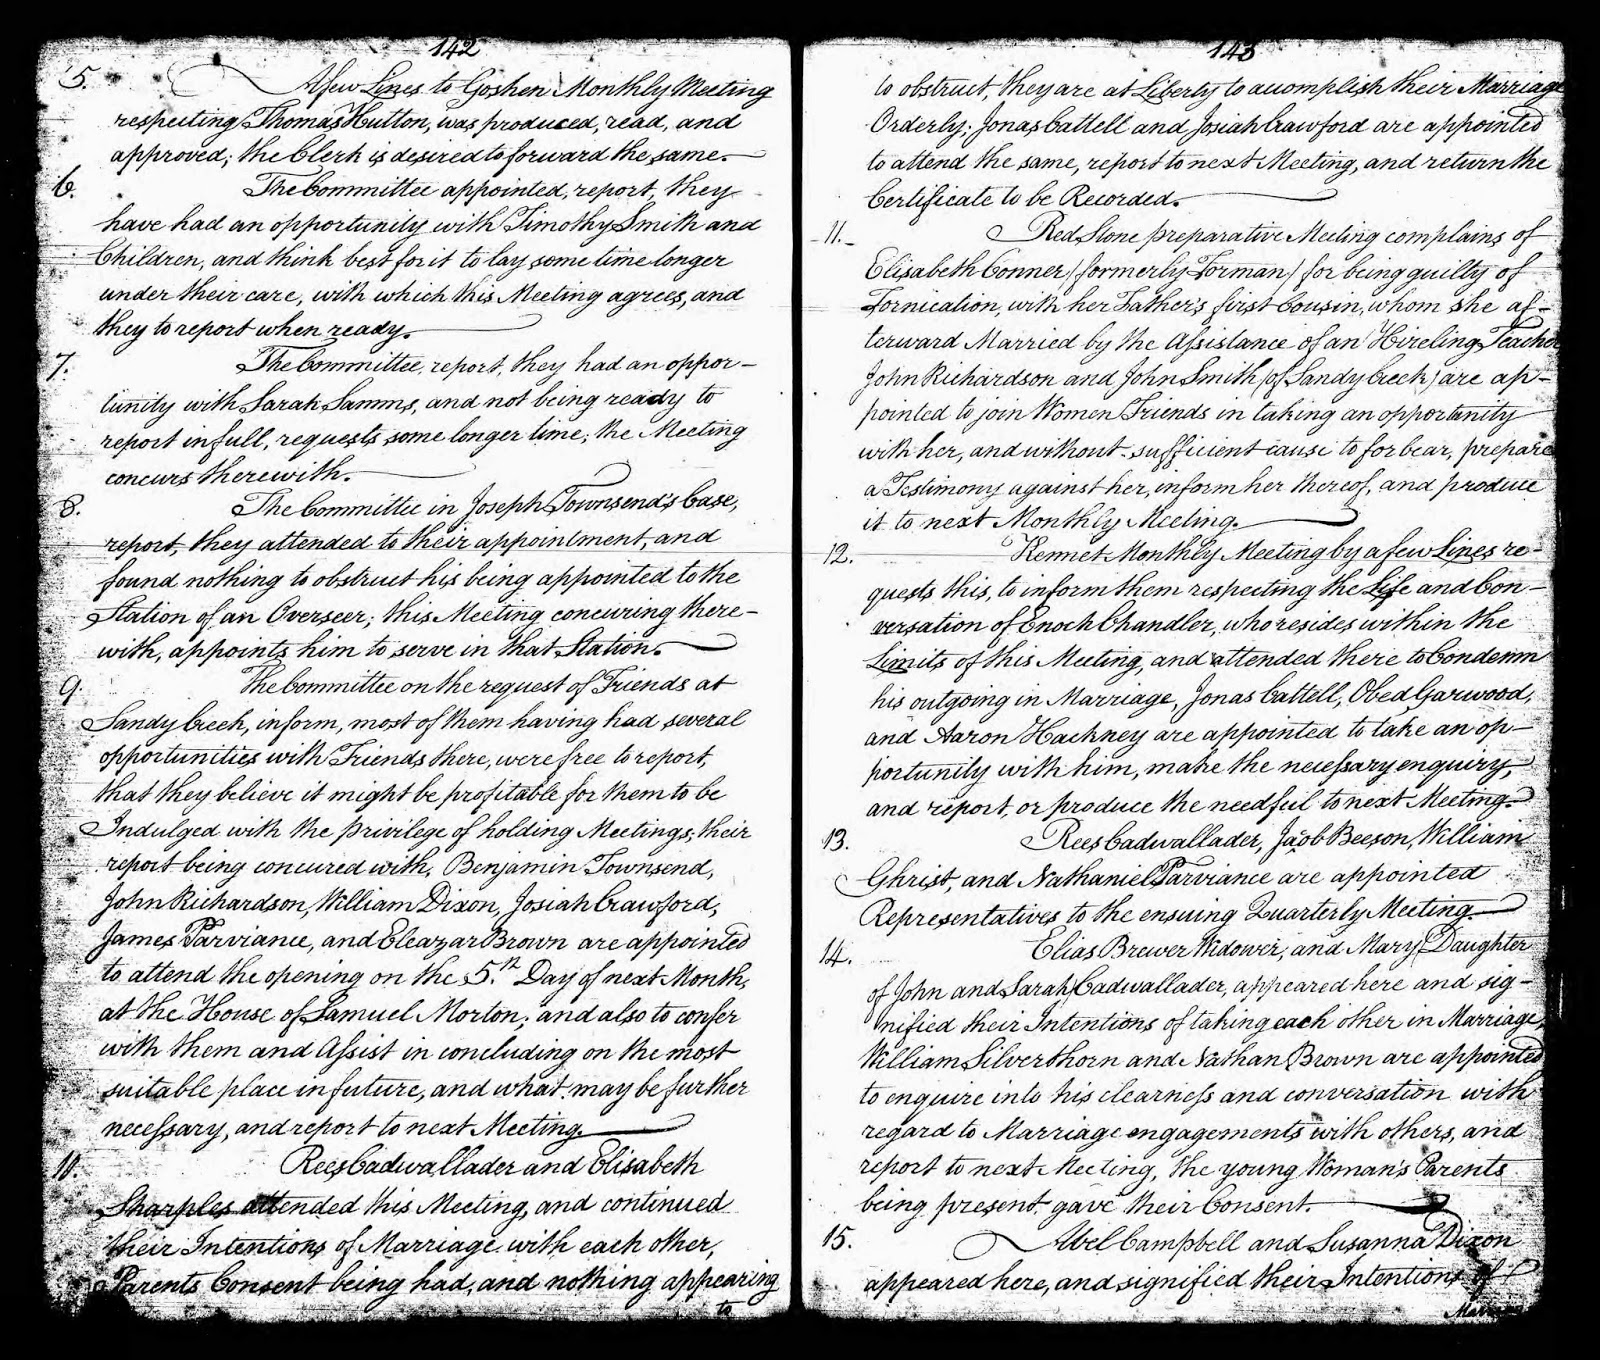 142
5. A few Lines to Goshen Monthly Meeting
respecting Thomas Hutton, was produced, read, and
approved; the Clerk is desired to forward the same.
6. The Committee appointed, report, they
have had an opportunity with Timothy Smith and
Children, and think best for it to lay some time longer
under their care, with which this Meeting agrees, and
they to report when ready.
7. The Committee, report, they had an oppor-
tunity with Sarah Samms, and not being ready to
report in full, requests some longer time; the Meeting
concurs therewith.
8. The Committee in Joseph Townsend's Case,
report, they attended to their appointment, and
found nothing to obstruct his being appointed to the
Station of an Overseer; this Meeting concuring there-
with, appoints him to serve in that Station.
9. The Committee on the request of Friends at
Sandy Creek, inform, most of them having had several
opportunities with Friends there, were free to report,
that they believe it might be profitable for them to be
Indulged with the privilege of holding Meetings; their
report being concured with, Benjamin Townsend,
John Richardson, William Dixon, Josiah Crawford,
James Parviance, and Eleazar Brown are appointed
to attend the opening on the 5.th Day of next Month,
at the House of Samuel Morton; and also to confer
with them and Assist in concluding on the most
suitable place in future, and what may be further
necessary, and report to next Meeting.
10. Rees Cadwallader and Elisabeth
Sharples attended this Meeting, and continued
their Intentions of Marriage with each other,
Parents Consent being had, and nothing appearing
to
143
to obstruct, they are at Liberty to accomplish their Marriage
Orderly; Jonas Cattell and Josiah Crawford are appointed
to attend the same, report to next Meeting, and return the
Certificate to be Recorded.
11. Red Stone preparative Meeting complains of
Elisabeth Conner (formerly Forman) for being guilty of
Fornication, with her Father's first Cousin, whom she af-
terward Married by the Assistance of an Hireling Teacher
John Richardson and John Smith (of Sandy Creek) are ap-
pointed to join Women Friends in taking an opportunity
with her, and without sufficient cause to forbear, prepare
a Testimony against her, inform her thereof, and produce
it to next Monthly Meeting.
12. Kennet Monthly Meeting by a few Lines re-
quests this, to inform them respecting the Life and Con-
versation of Enoch Chandler, who resides within the
Limits of this Meeting, and attended there to Condemn
his outgoing in Marriage, Jonas Cattell, Obed Garwood,
and Aaron Hackney are appointed to take an op-
portunity with him, make the necessary enquiry,
and report, or produce the needful to next Meeting.
13. Rees Cadwallader, Jacob Beeson, William
Ghrist, and Nathaniel Parviance are appointed
Representatives to the ensuing Quarterly Meeting.
14. Elias Brewer Widower, and Mary Daughter
of John and Sarah Cadwallader, appeared here and sig-
nified their Intentions of taking each other in Marriage,
William Silverthorn and Nathan Brown are appointed
to enquire into his clearness and conversation with
regard to Marriage engagements with others, and
report to next Meeting, the young Woman's Parents
being present gave their Consent.
15. Abel Campbell and Susanna Dixon
appeared here, and signified their Intentions of